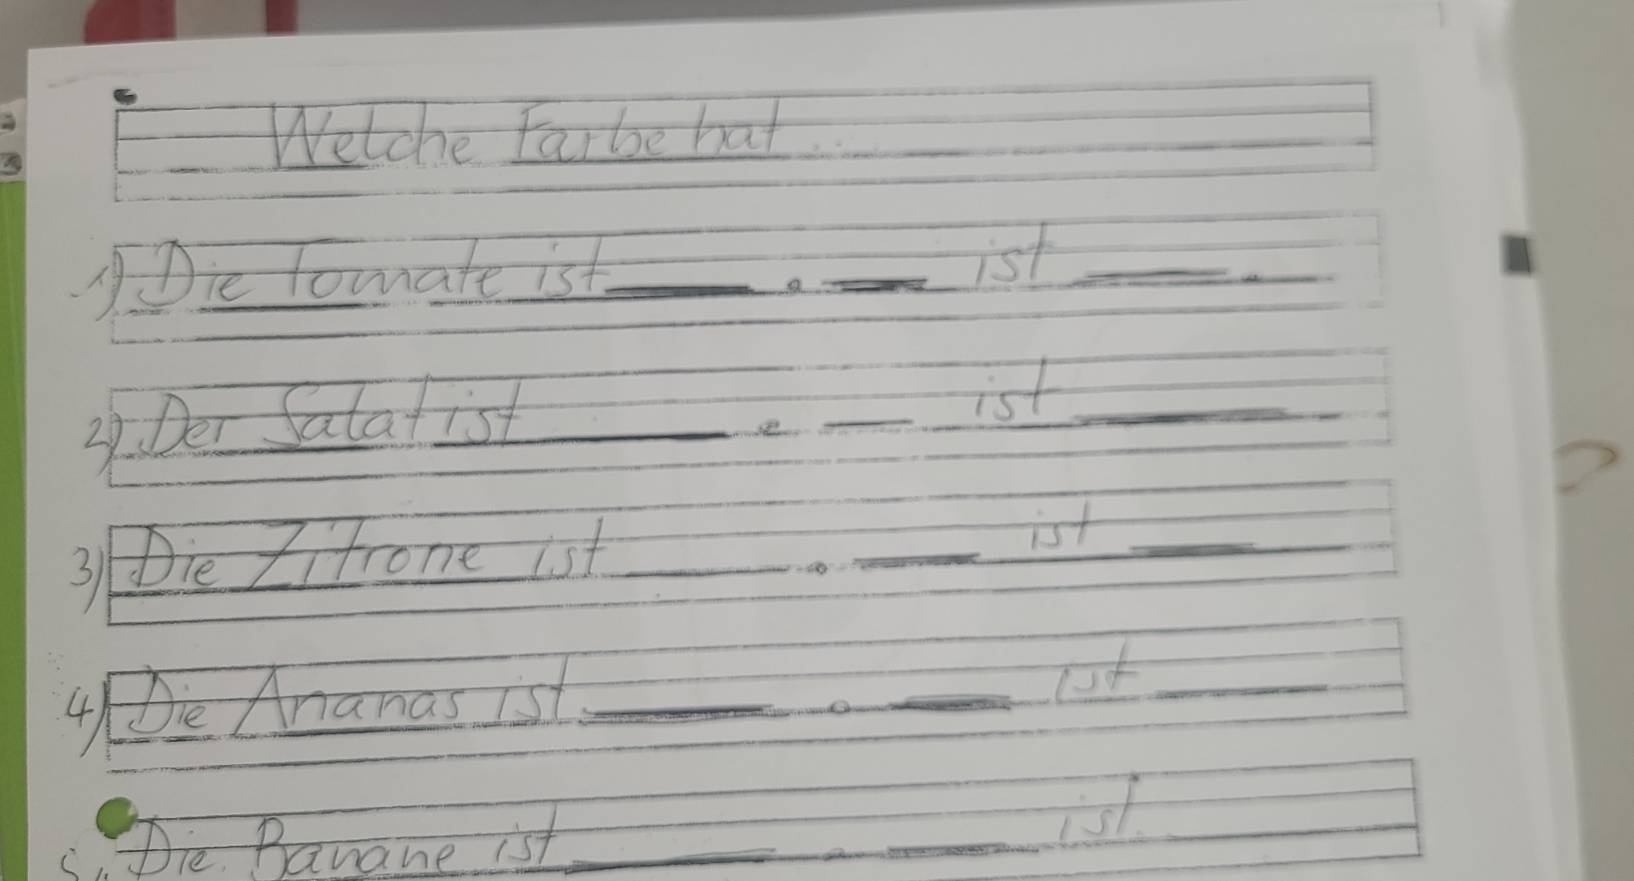 Welche Farbe hat ...
1) Die Tomate ist ____. ____ ist ____.
2) Der Salat ist ____. ____ ist ____
3) Die Zitrone ist ____. ____ ist ____
4) Die Ananas ist ____. ____ ist ____
5) Die Banane ist ____. ____ ist